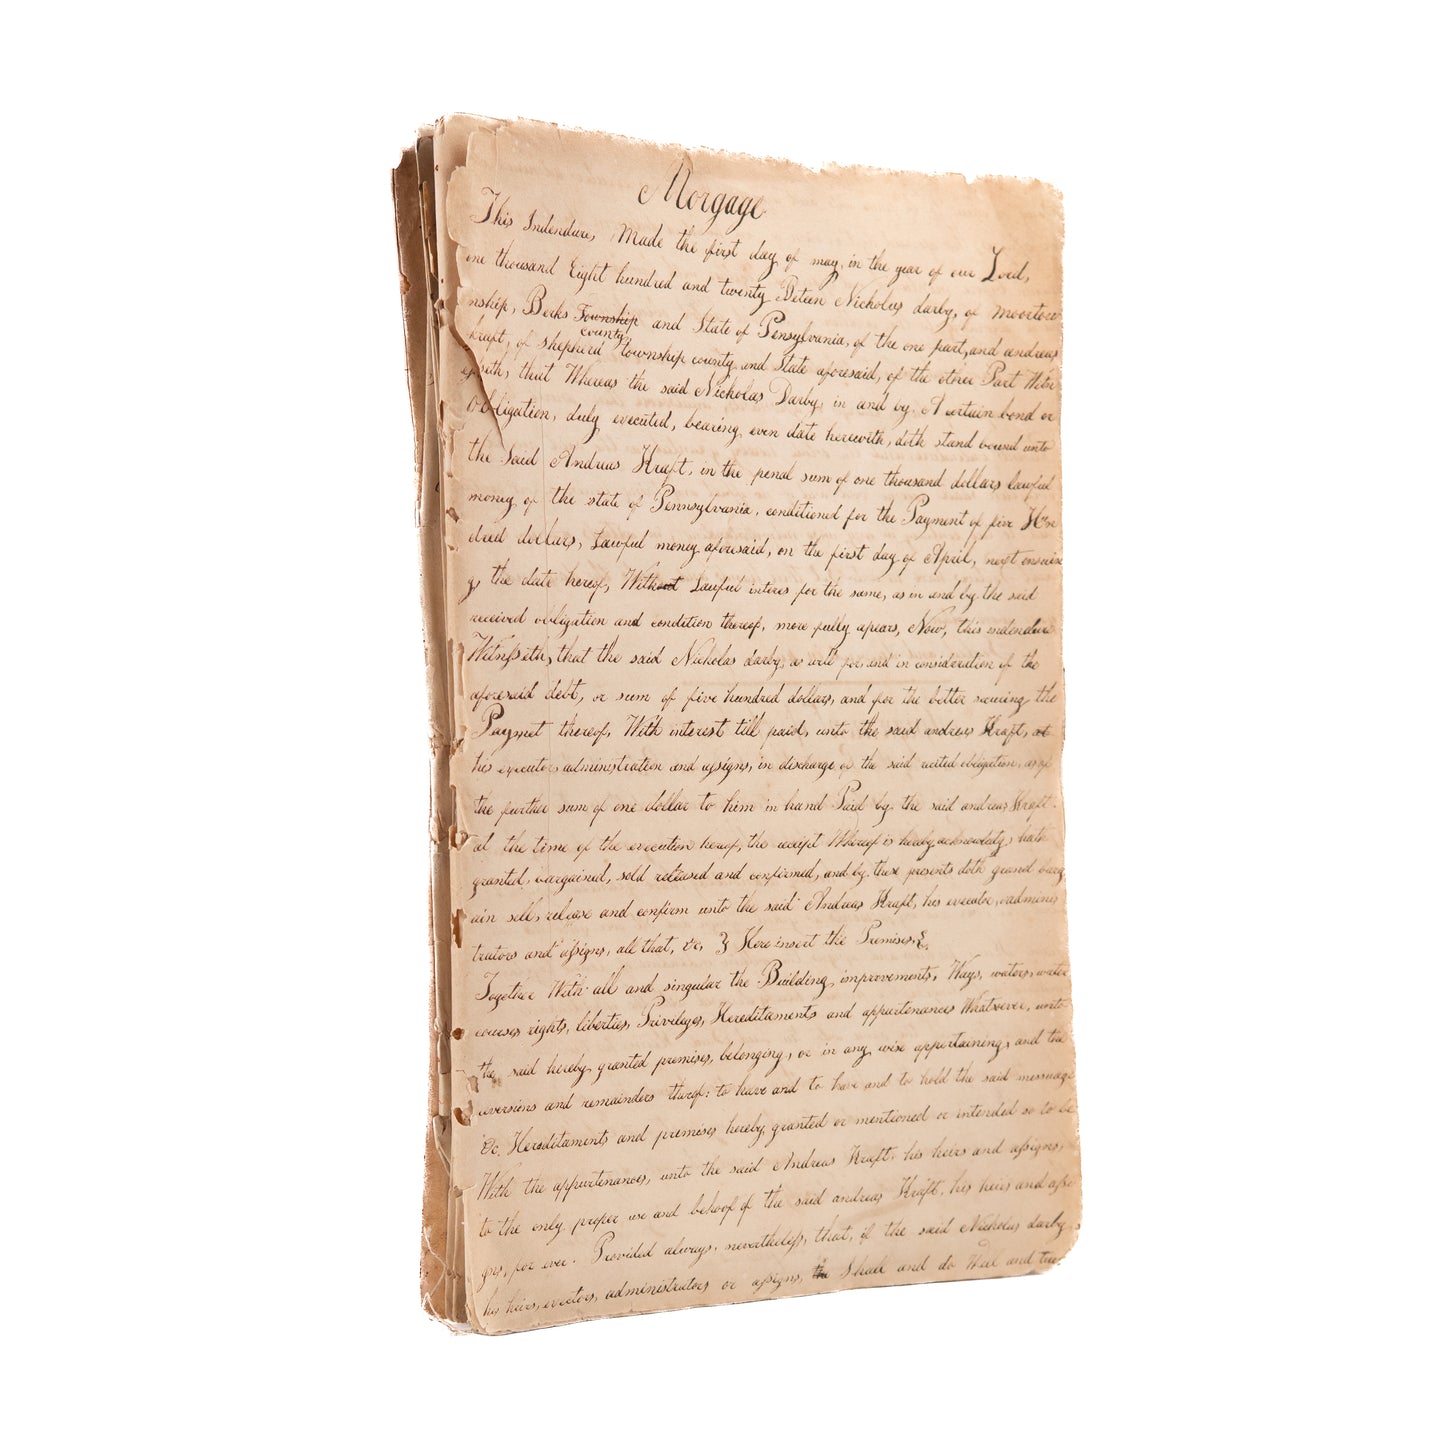 Morgage
This Indendure, Made the first day of may, in the year of our Lord,
one thousand Eight hundred and twenty Between Nicholas darby, of moortow
nship, Berks Township county and State of Pensylvania, of the one part, and andreas
Kraft, of shepherd township county and State aforesaid, of the other Part Witn
eseth, that Whereas the said Nicholas Darby, in and by A certain bond or
obligation, duly executed, bearing even date herewith, doth stand bound unto
the Said Andreas Kraft, in the penal sum of one thousand dollars lawful
money of the state of Pennsylvania, conditioned for the Payment of five Hun
dred dollars, Lawful money aforesaid, on the first day of April, next ensuin
g, the date hereof, Without Lawful interes for the same, as in and by the said
received obligation and condition thereof, more fully apears, Now, this indendure
Witnesseth, that the said Nicholas darby, as well for and in consideration of the
aforesaid debt, or sum of five hundred dollars, and for the better securing the
Paymet thereof, With interest till paid, unto the said andreas Kraft,
his executor, administration and assigns, in discharge of the said recited obligation, as of
the further sum of one dollar to him in hand Paid by the said andreas Kraft
at the time of the execution hereof, the receipt Whereof is hereby acknowledg, hath
granted, bargained, sold released and confirmed, and by these presents doth grand barg
ain sell, release and confirm unto the said Andreas Kraft, his execator, adminis
trators and assigns, all that, &c, } Here insert the Premises, {
Together With all and singular the Building, improvements, Ways, waters, water
courses rights, liberties, Privileges, Hereditaments and appurtenances Whatsoever, unto
the said hereby granted premises, belonging, or in any wise appertaining, and the
reversions and remainders therof: to have and to have and to hold the said messuage
&c. Hereditaments and premises hereby granted or mentioned or intended so to be
With the appurtenances, unto the said Andreas Kraft, his heirs and assigns,
to the only proper use and behoof of the said andreas Kraft, his heirs and assi
gns, for ever. Provided always, nevertheless, that, if the said Nicholas darby
his heirs, exectors, administrators or assigns, the Shall and do Well and